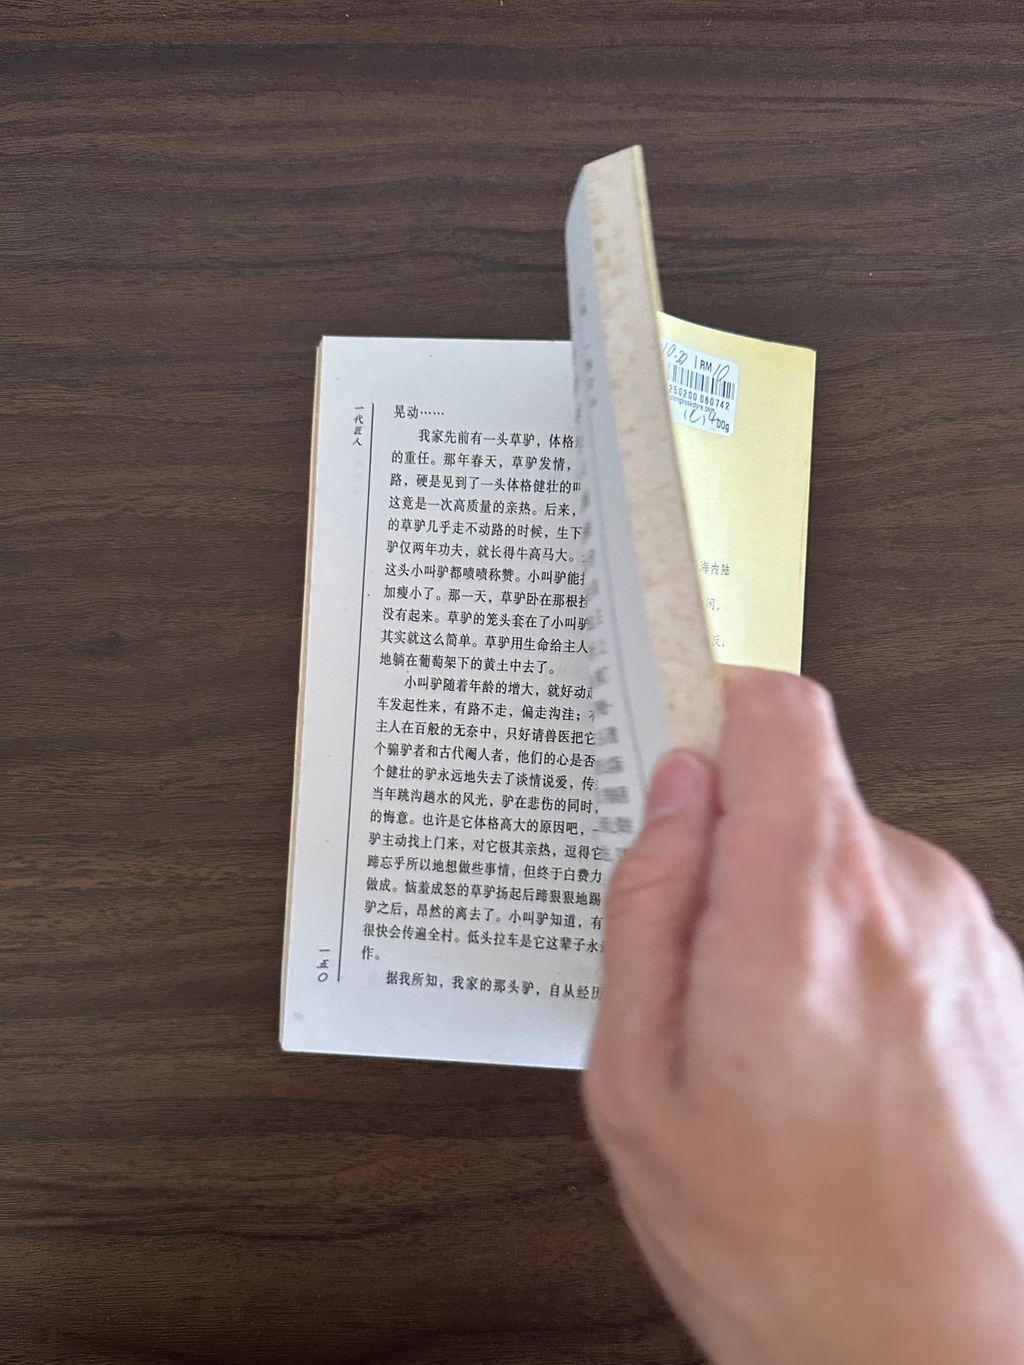 一代匠人
晃动……
我家先前有一头草驴，体格
的重任。那年春天，草驴发情，
路，硬是见到了一头体格健壮的叫
这竟是一次高质量的亲热。后来，
的草驴几乎走不动路的时候，生下
驴仅两年功夫，就长得牛高马大。
这头小叫驴都啧啧称赞。小叫驴能
加瘦小了。那一天，草驴卧在那根
没有起来。草驴的笼头套在了小叫驴
其实就这么简单。草驴用生命给主人
地躺在葡萄架下的黄土中去了。
小叫驴随着年龄的增大，就好动
车发起性来，有路不走，偏走沟洼；
主人在百般的无奈中，只好请兽医把它
个骟驴者和古代阉人者，他们的心是否
个健壮的驴永远地失去了谈情说爱，传
当年跳沟趟水的风光，驴在悲伤的同时，
的悔意。也许是它体格高大的原因吧，
驴主动找上门来，对它极其亲热，逗得它
蹄忘乎所以地想做些事情，但终于白费力
做成。恼羞成怒的草驴扬起后蹄狠狠地踢
驴之后，昂然的离去了。小叫驴知道，有
很快会传遍全村。低头拉车是它这辈子永
作。
据我所知，我家的那头驴，自从经历
一五〇
RM 10
250200 060742
海内陆
闲，
反，